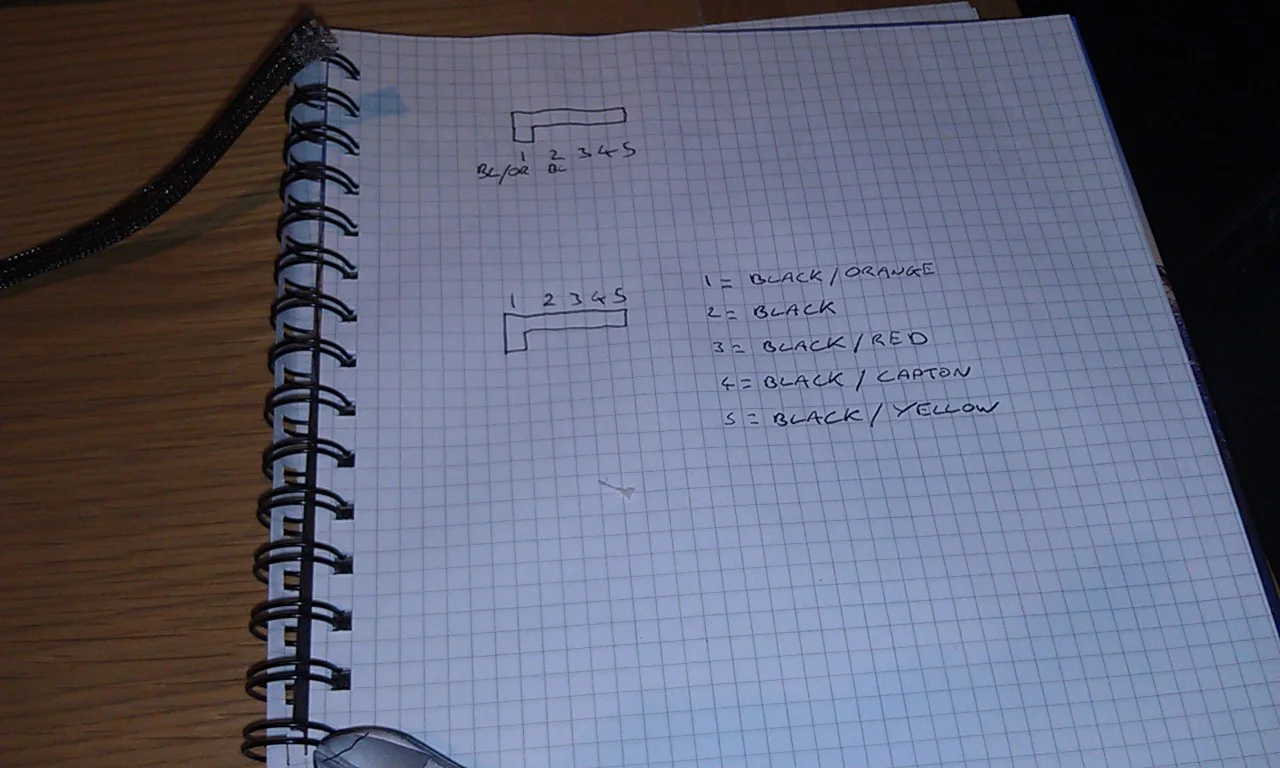 1 2 3 4 5
BL/OR BL
1 2 3 4 5
1 = BLACK/ORANGE
2 = BLACK
3 = BLACK/RED
4 = BLACK/CAPTON
5 = BLACK/YELLOW